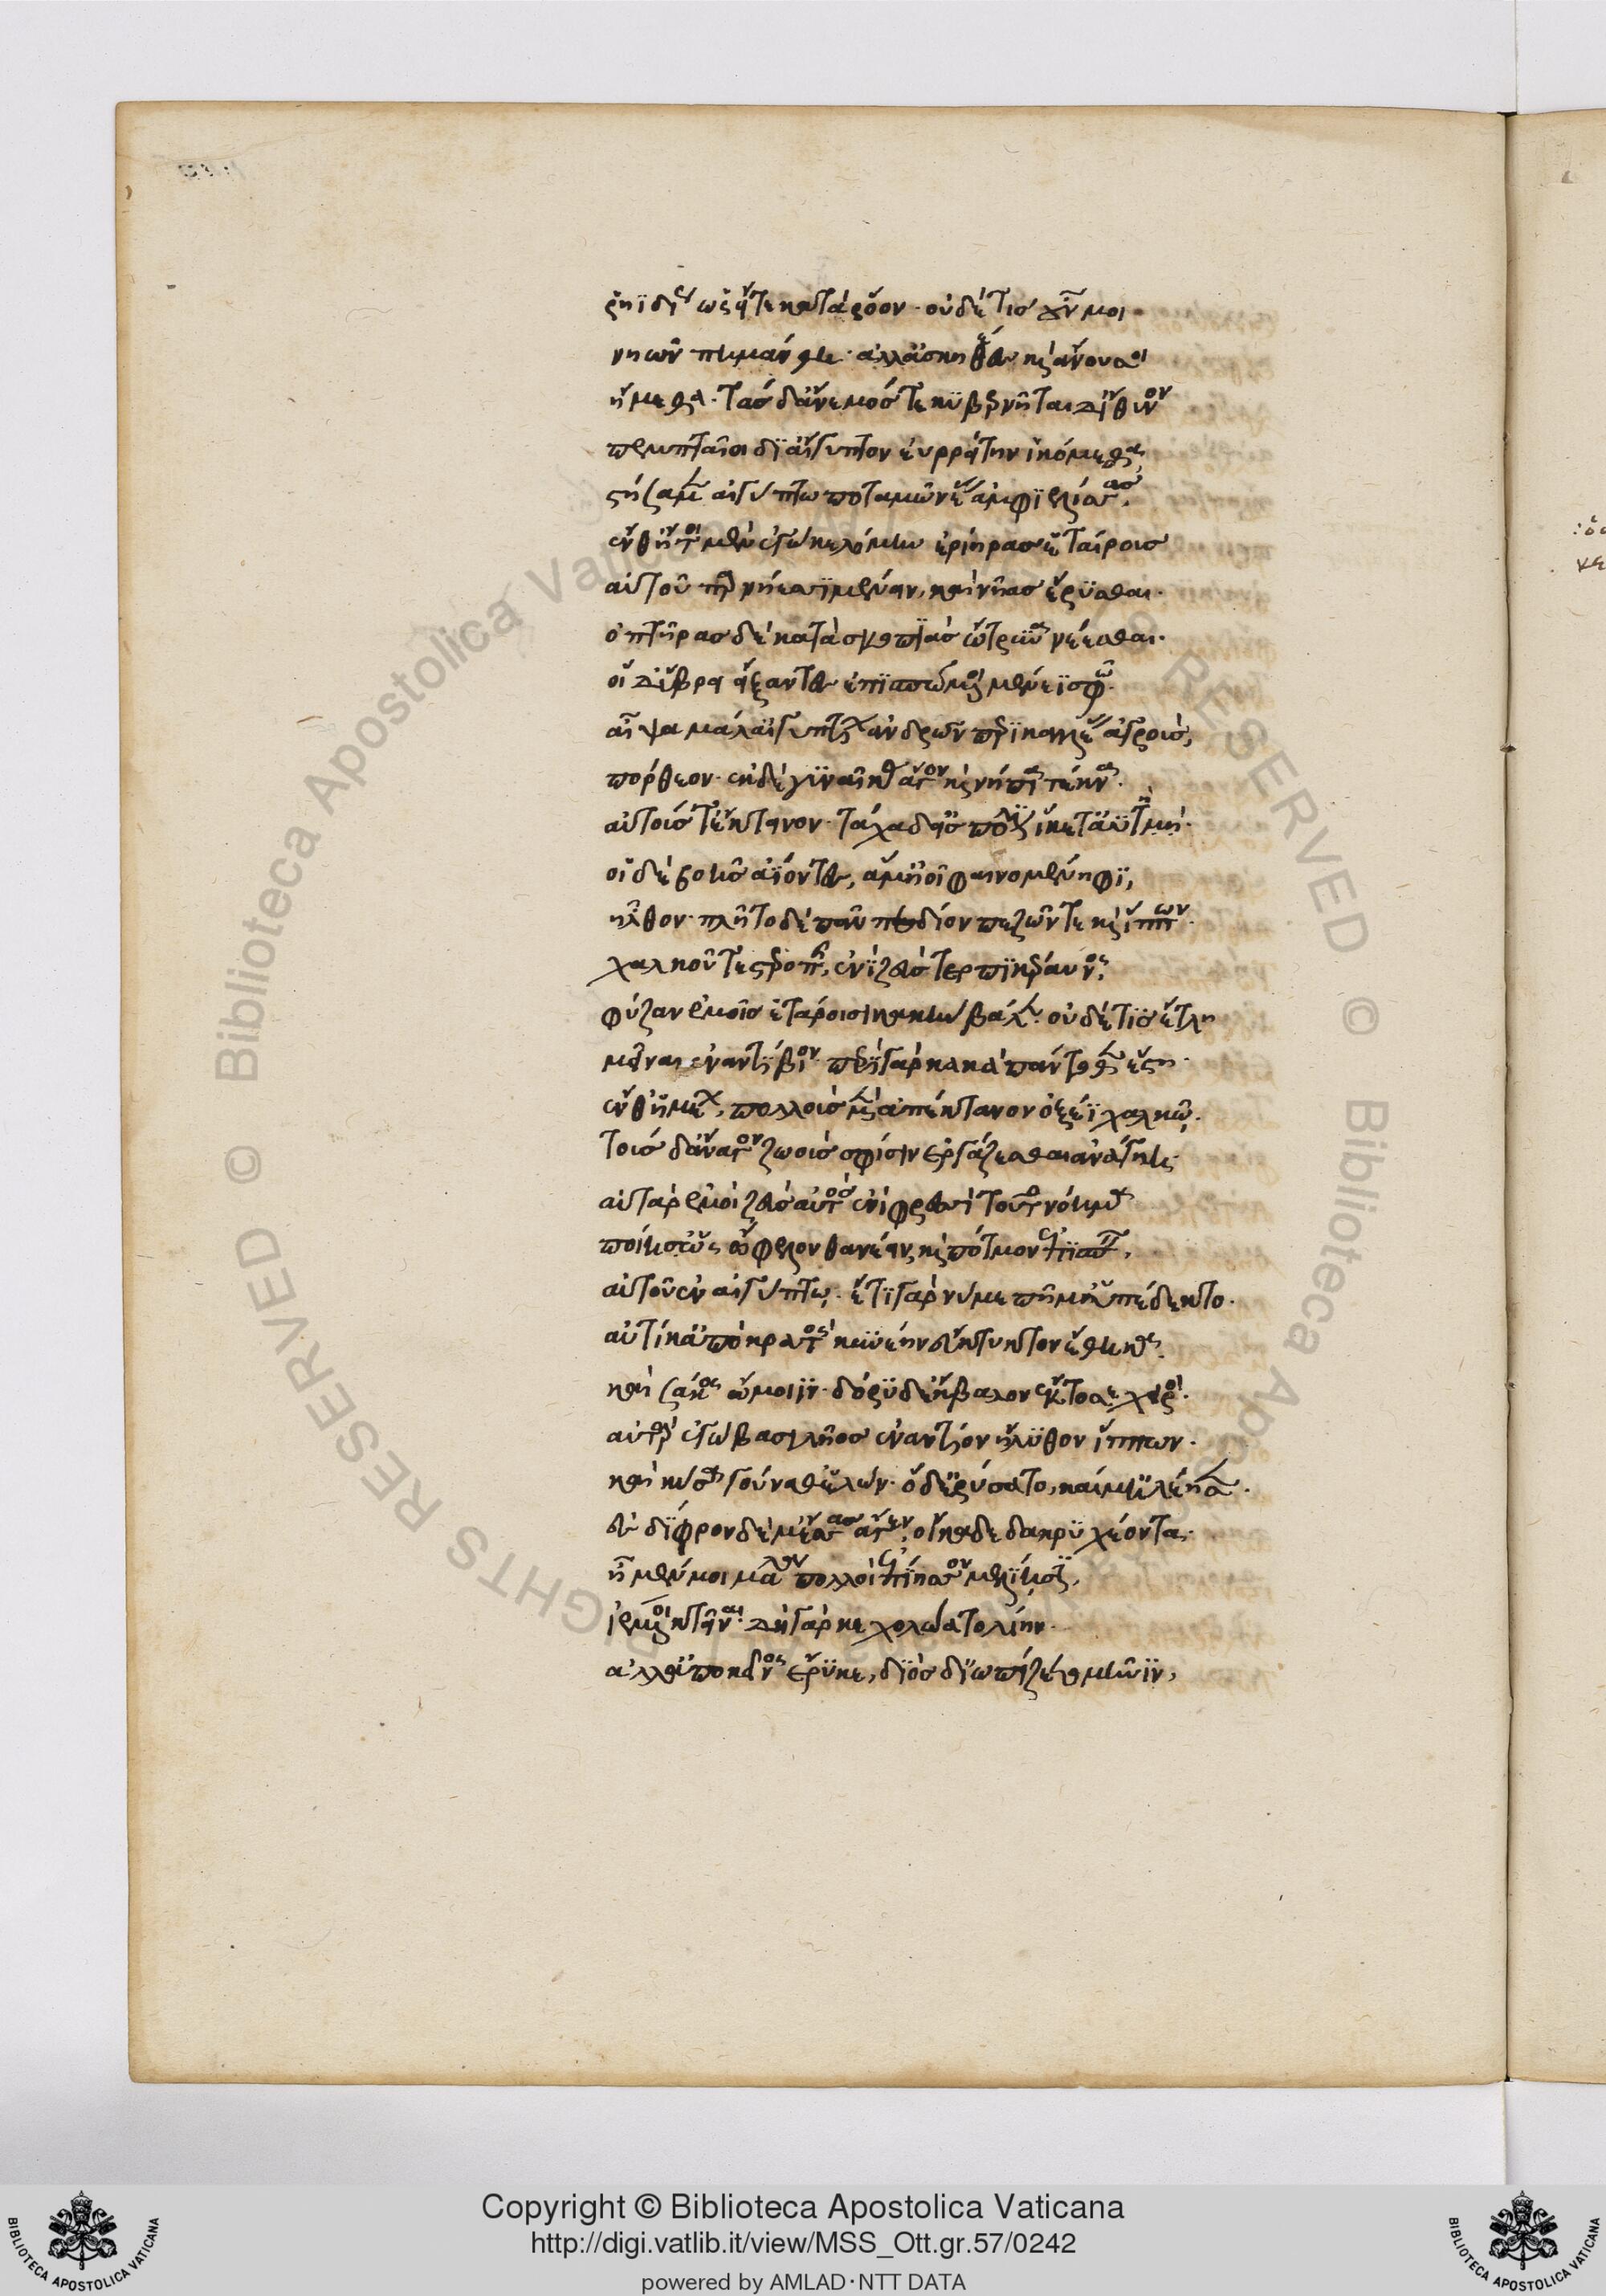 ῥηϊδίως ὡς εἴτε κατὰ ῥόον· οὐδέ τισ οὖν μοι
νηῶν πημάνθη· ἀλλ' ἀσκηθέες καὶ ἄνουσοι
ἥμεθα· τὰσ δ' ἄνεμόσ τε κυβερνῆται δ' ἴθυνον
πεμπταῖοι δ' αἴγυπτον ἐυρρείτην ἱκόμεσθα,
στῆσα μὲν αἰγύπτω ποταμῶ νέας ἀμφιελίσσασ.
ἔνθ' ἤτοι μὲν ἐγὼ κελόμην ἐρίηρασ ἑταίρουσ
αὐτοῦ παρ νήεσσι μένειν, καὶ νῆασ ἔρυσθαι.
ὀπτῆρασ δὲ κατὰ σκοπιὰσ ὤτρυνα νέεσθαι.
οἱ δ' ὕβρει εἴξαντες ἐπισπόμενοι μένεϊ σφῶ.
αἶψα μάλ' αἰγυπτίων ἀνδρῶν περικαλλέας ἀγροὺσ,
πόρθεον· ἐκ δὲ γυναῖκας ἄγον καὶ νήπια τέκνα.
αὐτούσ τ' ἔκτεινον· τάχα δ' ἐσ πόλιν ἵκετ' ἀϋτμή.
οἱ δὲ βοῆσ ἀΐοντες, ἅμ' ἠοῖ φαινομένηφι,
ἦλθον· πλῆτο δὲ πᾶν πεδίον πεζῶν τε καὶ ἵππων.
χαλκοῦ τε στεροπῆς, ἐν δὲ ζεὺσ τερπικέραυνος,
φύζαν ἐμοῖσ ἑτάροισι κακὴν βάλεν· οὐδέ τισ ἔτλη
μεῖναι ἐναντίβιον· περὶ γὰρ κακὰ πάντοθεν ἔστη.
ἔνθ' ἡμέων, πολλοὺσ μὲν ἀπέκτανον ὀξέϊ χαλκῷ.
τοὺσ δ' ἄναγον ζωοὺσ σφίσιν ἐργάζεσθαι ἀνάγκη.
αὐτὰρ ἐμοὶ ζεὺσ αὐτὸσ ἐνὶ φρεσὶ τοῦτο νόημα
ποίησ' ὡς ὤφελον θανέειν, καὶ πότμον ἐπισπεῖν,
αὐτοῦ ἐν αἰγύπτῳ. ἔτι γὰρ νύ με πῆμ' ὑπέδεκτο.
αὐτίκ' ἀπὸ κρατὸς κυνέην εὔτυκτον ἔθηκα.
καὶ σάκος ὤμοιϊν· δόρυ δ' ἔκβαλον ἔκτοσε χειρός.
αὐτὰρ ἐγὼ βασιλῆοσ ἐναντίον ἤλυθον ἵππων.
καὶ κύσα γούναθ' ἑλών· ὁ δ' ἐρύσατο, καί μ' ἐλέησεν.
ἐς δίφρον δέ μ' ἕσασ ἄγεν, οἴκαδε δάκρυ χέοντα.
ἦ μέν μοι μάλα πολλοὶ ἐπήϊσσον μελίῃσιν,
ἱέμενοι κτεῖναι. δὴ γὰρ κεχολώατο λίην.
ἀλλ' ἀπὸ κεῖνος ἔρυκε, διὸσ δ' ὠπίζετο μῆνιν,
Copyright © Biblioteca Apostolica Vaticana
http://digi.vatlib.it/view/MSS_Ott.gr.57/0242
powered by AMLAD·NTT DATA